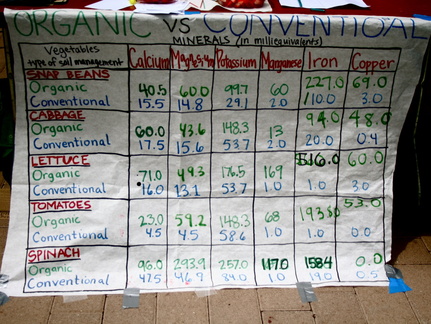 ORGANIC VS CONVENTIONAL
MINERALS (in milliequivalents)
Vegetables Calcium Potassium Manganese Iron Copper
type of soil management
SNAP BEANS
Organic 40.5 60.0 99.7 60 227.0 69.0
Conventional 15.5 14.8 29.1 2.0 10.0 3.0
CABBAGE
Organic 60.0 43.6 148.3 13 94.0 48.0
Conventional 17.5 15.6 53.7 2.0 20.0 0.4
LETTUCE
Organic 71.0 49.3 176.5 169 516.0 60.0
Conventional 16.0 13.1 53.7 1.0 1.0 3.0
TOMATOES
Organic 23.0 59.2 148.3 68 1938.0 53.0
Conventional 4.5 4.5 58.6 1.0 1.0 0.0
SPINACH
Organic 96.0 293.9 257.0 117.0 1584
Conventional 47.5 46.9 84.0 1.0 19.0 0.5